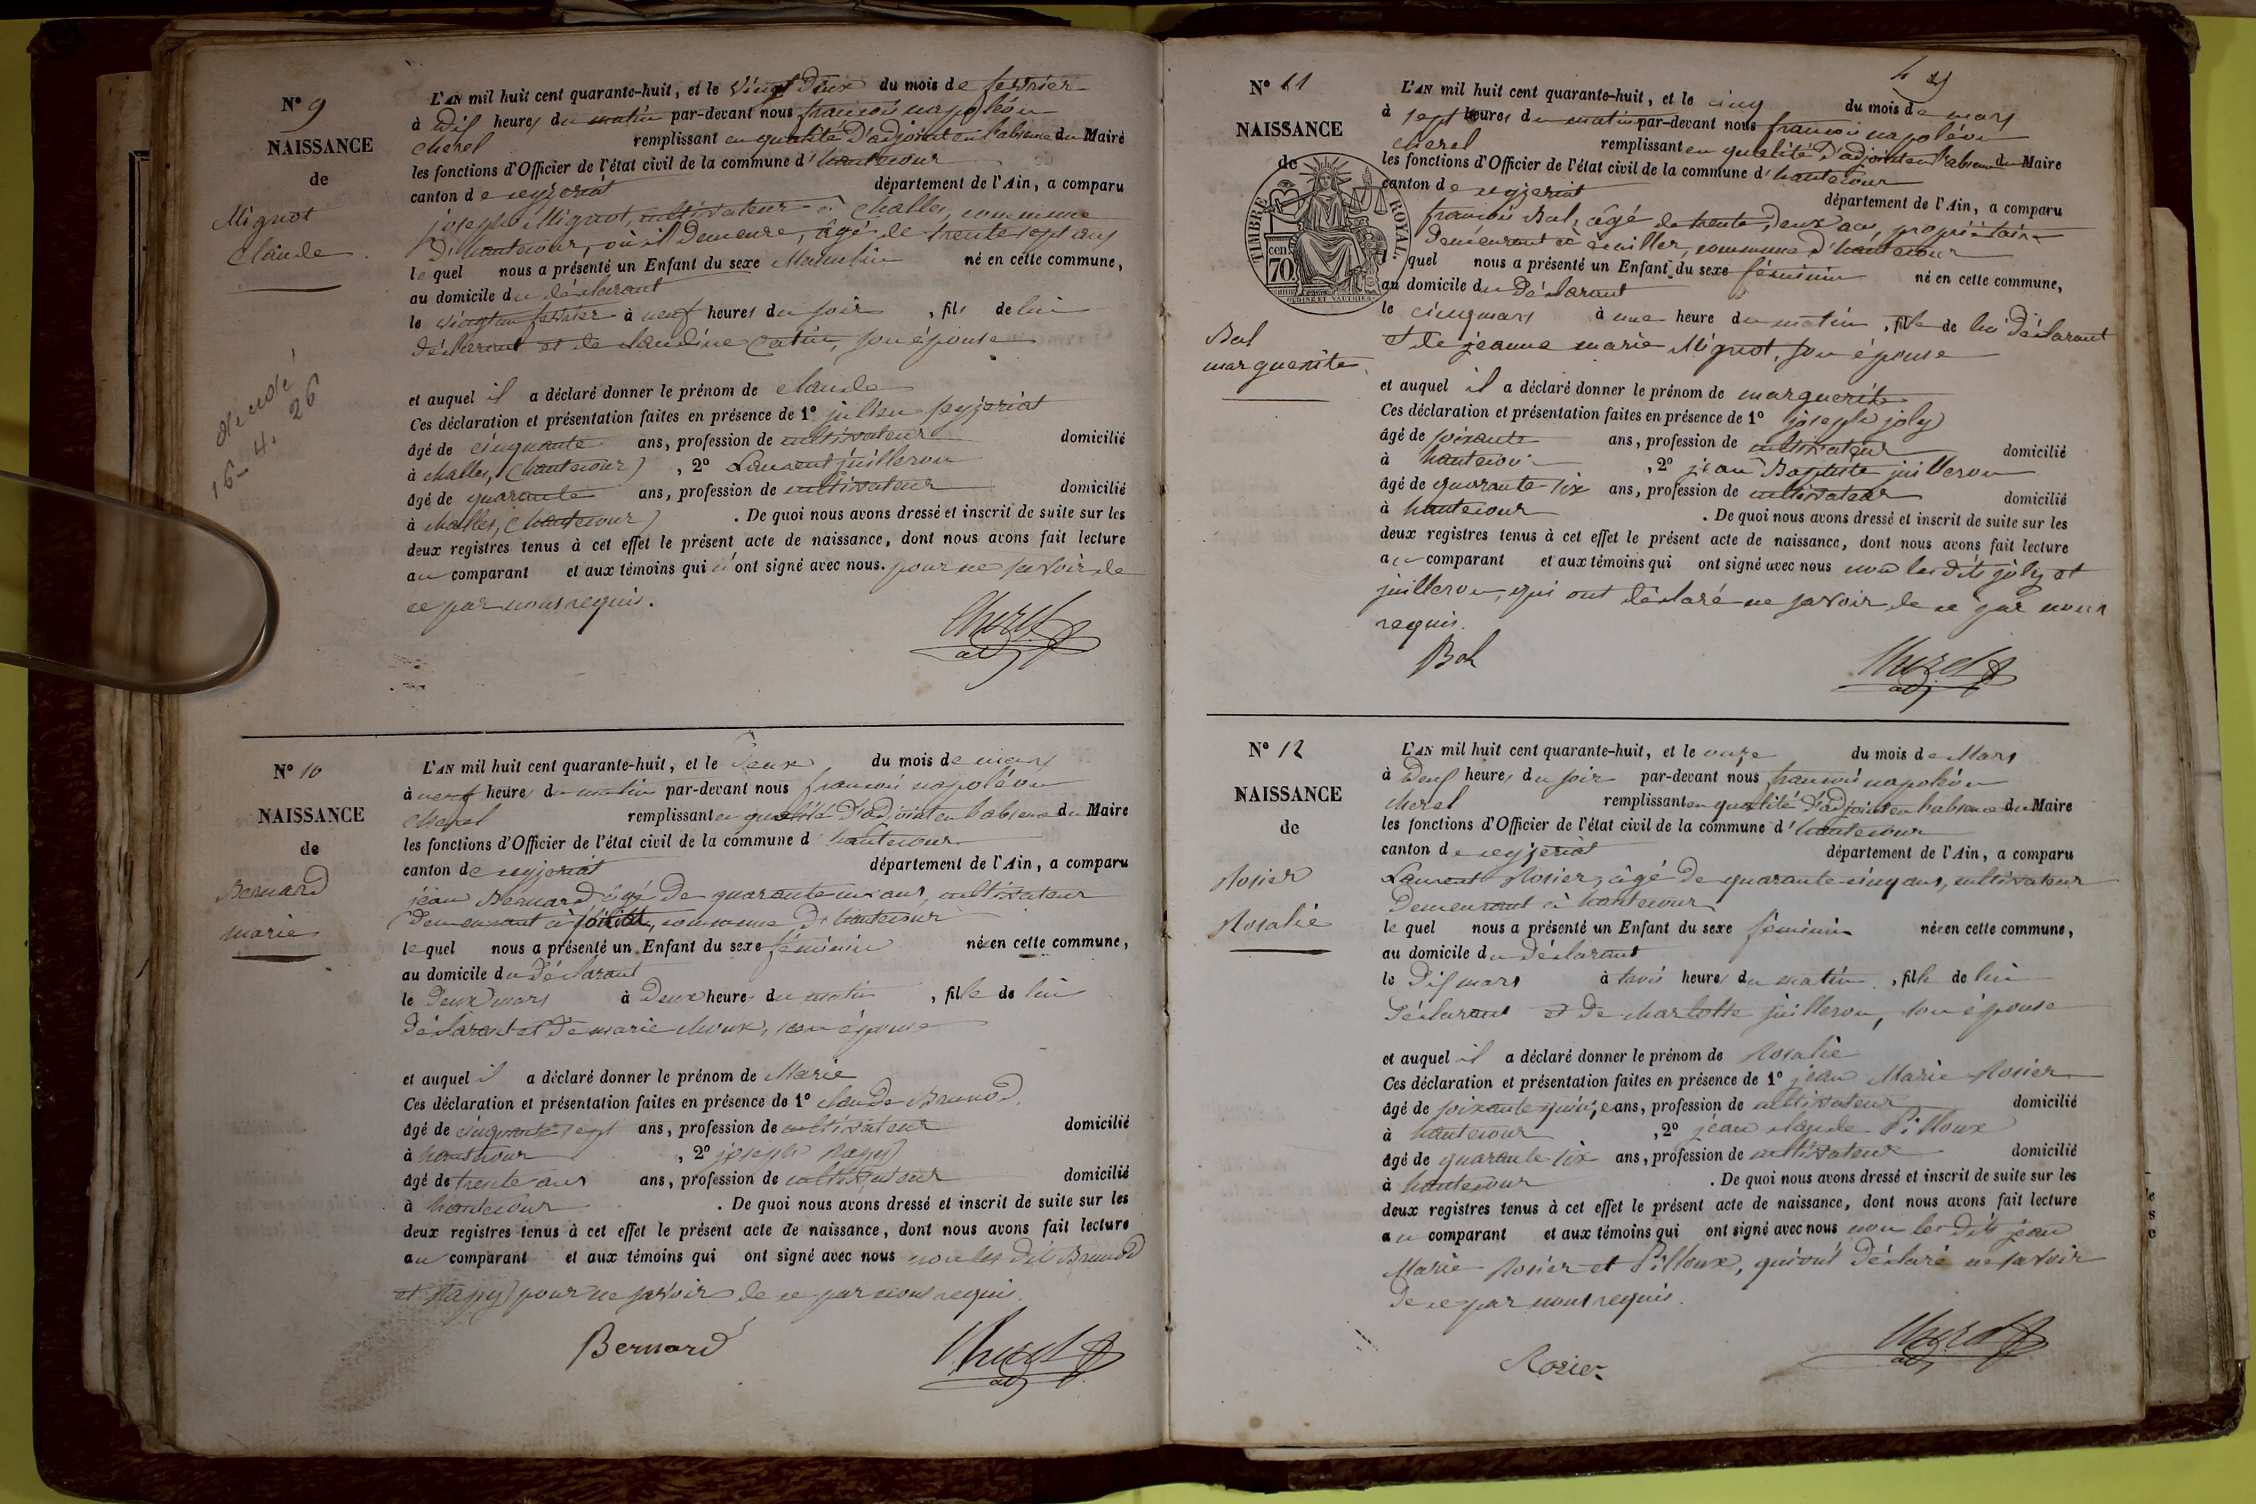 N° 9
NAISSANCE
de
Mignot
Claude
décédé
16-4. 26
L'AN mil huit cent quarante-huit, et le vingt deux du mois de fevrier
à dix heures du matin par-devant nous françois napoléon
Cherel remplissant en qualité d'adjoint en l'absence du Maire
les fonctions d'Officier de l'état civil de la commune d'hautecour
canton de ceyzeriat département de l'Ain, a comparu
joseph Mignot, cultivateur à Challes, commune
d'hautecour, où il demeure, âgé de trente sept ans
le quel nous a présenté un Enfant du sexe Masculin né en cette commune,
au domicile du déclarant
le vingt un fevrier à neuf heures du soir , fils de lui
déclarant et de claudine Catin, son épouse
et auquel il a déclaré donner le prénom de claude
Ces déclaration et présentation faites en présence de 1° julien seyzeriat
âgé de cinquante ans, profession de cultivateur domicilié
à challes, (hautecour) , 2° Laurent juilleron
âgé de quarante ans, profession de cultivateur domicilié
à challes, (hautecour) . De quoi nous avons dressé et inscrit de suite sur les
deux registres tenus à cet effet le présent acte de naissance, dont nous avons fait lecture
au comparant et aux témoins qui n'ont signé avec nous. pour ne savoir de
ce par nous requis.
Cherel
adj
N° 10
NAISSANCE
de
Bernard
marie
L'AN mil huit cent quarante-huit, et le deux du mois de mars
à neuf heures du matin par-devant nous françois napoléon
Cherel remplissant en qualité d'adjoint en l'absence du Maire
les fonctions d'Officier de l'état civil de la commune d hautecour
canton de ceyzeriat département de l'Ain, a comparu
jean Bernard âgé de quarante ans, cultivateur
demeurant à commune d'hautecour
le quel nous a présenté un Enfant du sexe féminin née en cette commune,
au domicile du déclarant
le deux mars à deux heures du matin , fille de lui
déclarant et de marie choux, son épouse
et auquel il a déclaré donner le prénom de Marie
Ces déclaration et présentation faites en présence de 1° claude Brunod
âgé de cinquante sept ans, profession de cultivateur domicilié
à hautecour , 2° joseph Ragy
âgé de trente ans ans, profession de cultivateur domicilié
à hautecour . De quoi nous avons dressé et inscrit de suite sur les
deux registres tenus à cet effet le présent acte de naissance, dont nous avons fait lecture
au comparant et aux témoins qui ont signé avec nous non les dits Brunod
et Ragy pour ne savoir de ce par nous requis.
Bernard
Cherel
adj
4
N° 11
NAISSANCE
de
TIMBRE ROYAL
cen 70
Bal
marguerite
L'AN mil huit cent quarante-huit, et le cinq du mois de mars
à sept heures du matin par-devant nous françois napoléon
Cherel remplissant en qualité d'adjoint en l'absence du Maire
les fonctions d'Officier de l'état civil de la commune d'hautecour
canton de ceyzeriat département de l'Ain, a comparu
françois Bal, âgé de trente deux ans, propriétaire
demeurant à commune d'hautecour
quel nous a présenté un Enfant du sexe féminin né en cette commune,
au domicile du déclarant
le cinq mars à une heure du matin , fille de lui déclarant
et de jeanne marie Mignot, son épouse
et auquel il a déclaré donner le prénom de marguerite
Ces déclaration et présentation faites en présence de 1° joseph joly
âgé de soixante ans, profession de cultivateur domicilié
à hautecour , 2° jean Baptiste juilleron
âgé de quarante six ans, profession de cultivateur domicilié
à hautecour . De quoi nous avons dressé et inscrit de suite sur les
deux registres tenus à cet effet le présent acte de naissance, dont nous avons fait lecture
au comparant et aux témoins qui ont signé avec nous non les dits joly et
juilleron, qui ont déclaré ne savoir de ce par nous
requis.
Bal
Cherel
adj
N° 12
NAISSANCE
de
Rosier
Rosalie
L'AN mil huit cent quarante-huit, et le onze du mois de Mars
à deux heures du soir par-devant nous françois napoléon
Cherel remplissant en qualité d'adjoint en l'absence du Maire
les fonctions d'Officier de l'état civil de la commune d'hautecour
canton de ceyzeriat département de l'Ain, a comparu
Laurent Rosier, âgé de quarante cinq ans, cultivateur
demeurant à hautecour
le quel nous a présenté un Enfant du sexe féminin née en cette commune,
au domicile du déclarant
le dix mars à trois heures du matin , fille de lui
déclarant et de charlotte juilleron, son épouse
et auquel il a déclaré donner le prénom de Rosalie
Ces déclaration et présentation faites en présence de 1° jean Marie Rosier
âgé de soixante quinze ans, profession de cultivateur domicilié
à hautecour , 2° jean claude Pilloux
âgé de quarante six ans, profession de cultivateur domicilié
à hautecour . De quoi nous avons dressé et inscrit de suite sur les
deux registres tenus à cet effet le présent acte de naissance, dont nous avons fait lecture
au comparant et aux témoins qui ont signé avec nous non les dits jean
Marie Rosier et Pilloux, qui ont déclaré ne savoir
de ce par nous requis.
Rosier
Cherel
adj